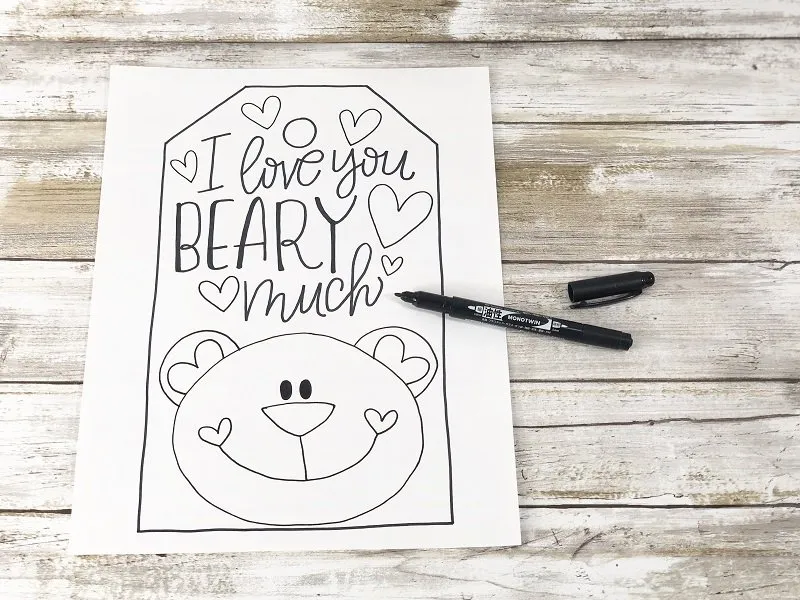 I love you
BEARY
much
油性 MONOTWIN